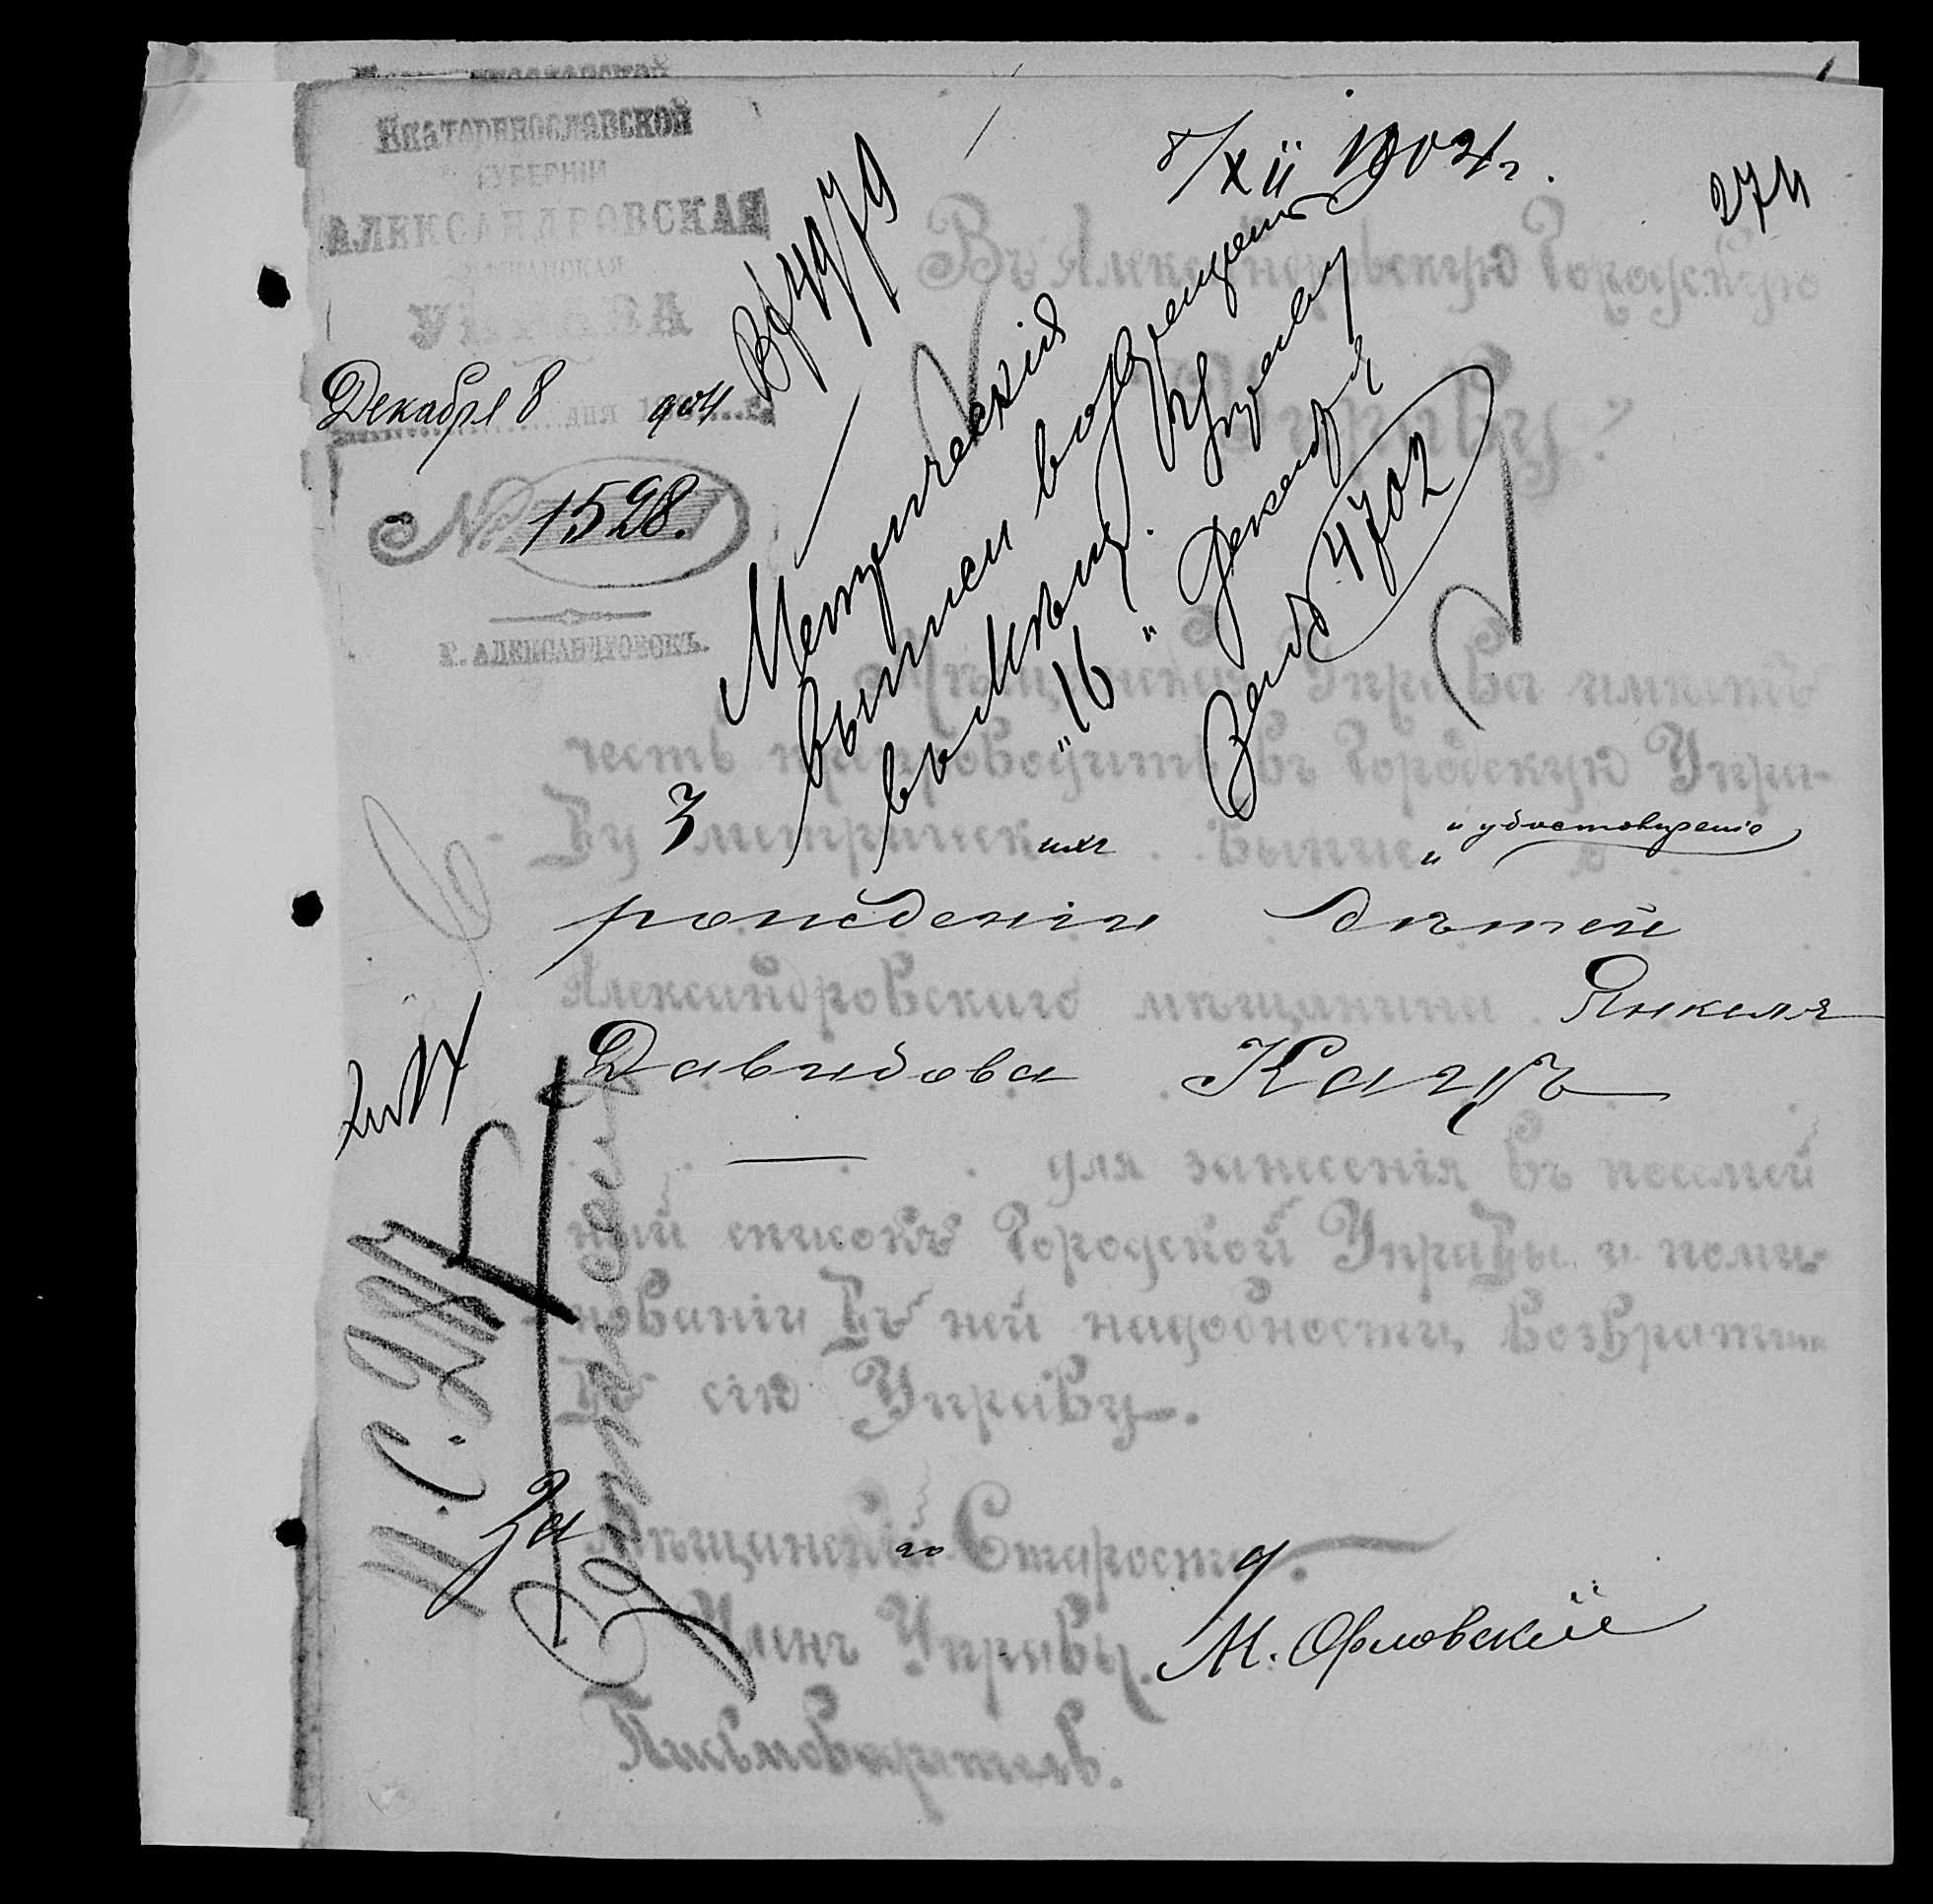 Екатеринославской
ГУБЕРНІИ
АЛЕКСАНДРОВСКАЯ
МѢЩАНСКАЯ
УПРАВА
Декабря 8 дня 1904 г.
№ 1598.
Г. АЛЕКСАНДРОВСКЪ.
Вх 4979
8/XII 1904 г.
274
Въ Александровскую Городскую
Управу.
Метрическія
выписи возвращены
въ Мѣщ. Управу
"16" Декабря
за № 4702
Мѣщанская Управа имѣетъ
честь препроводить въ Городскую Упра-
ву 3 метрическихъ выписи и удостовѣреніе о
рожденіи дѣтей
Александровскаго мѣщанина Янкеля
Давидова Кацъ
для занесенія въ посемей
ный списокъ Городской Управы и по ми-
нованіи въ ней надобности, возвратить
въ сію Управу.
За Мѣщанскаго Старосту
Членъ Управы М. Орловскій
Письмоводитель.